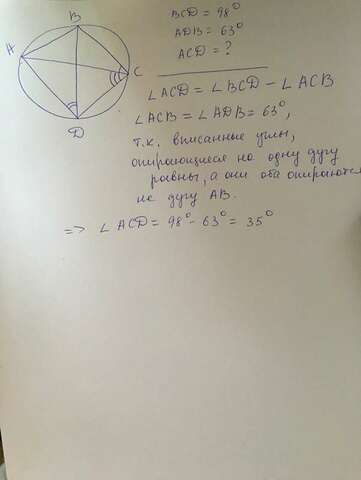 B
A
C
D
BCD = 98°
ADB = 63°
ACD = ?
∠ACD = ∠BCD − ∠ACB
∠ACB = ∠ADB = 63°,
т.к. вписанные углы,
опирающиеся на одну дугу
равны, а они оба опираются
на дугу AB.
=> ∠ACD = 98° − 63° = 35°